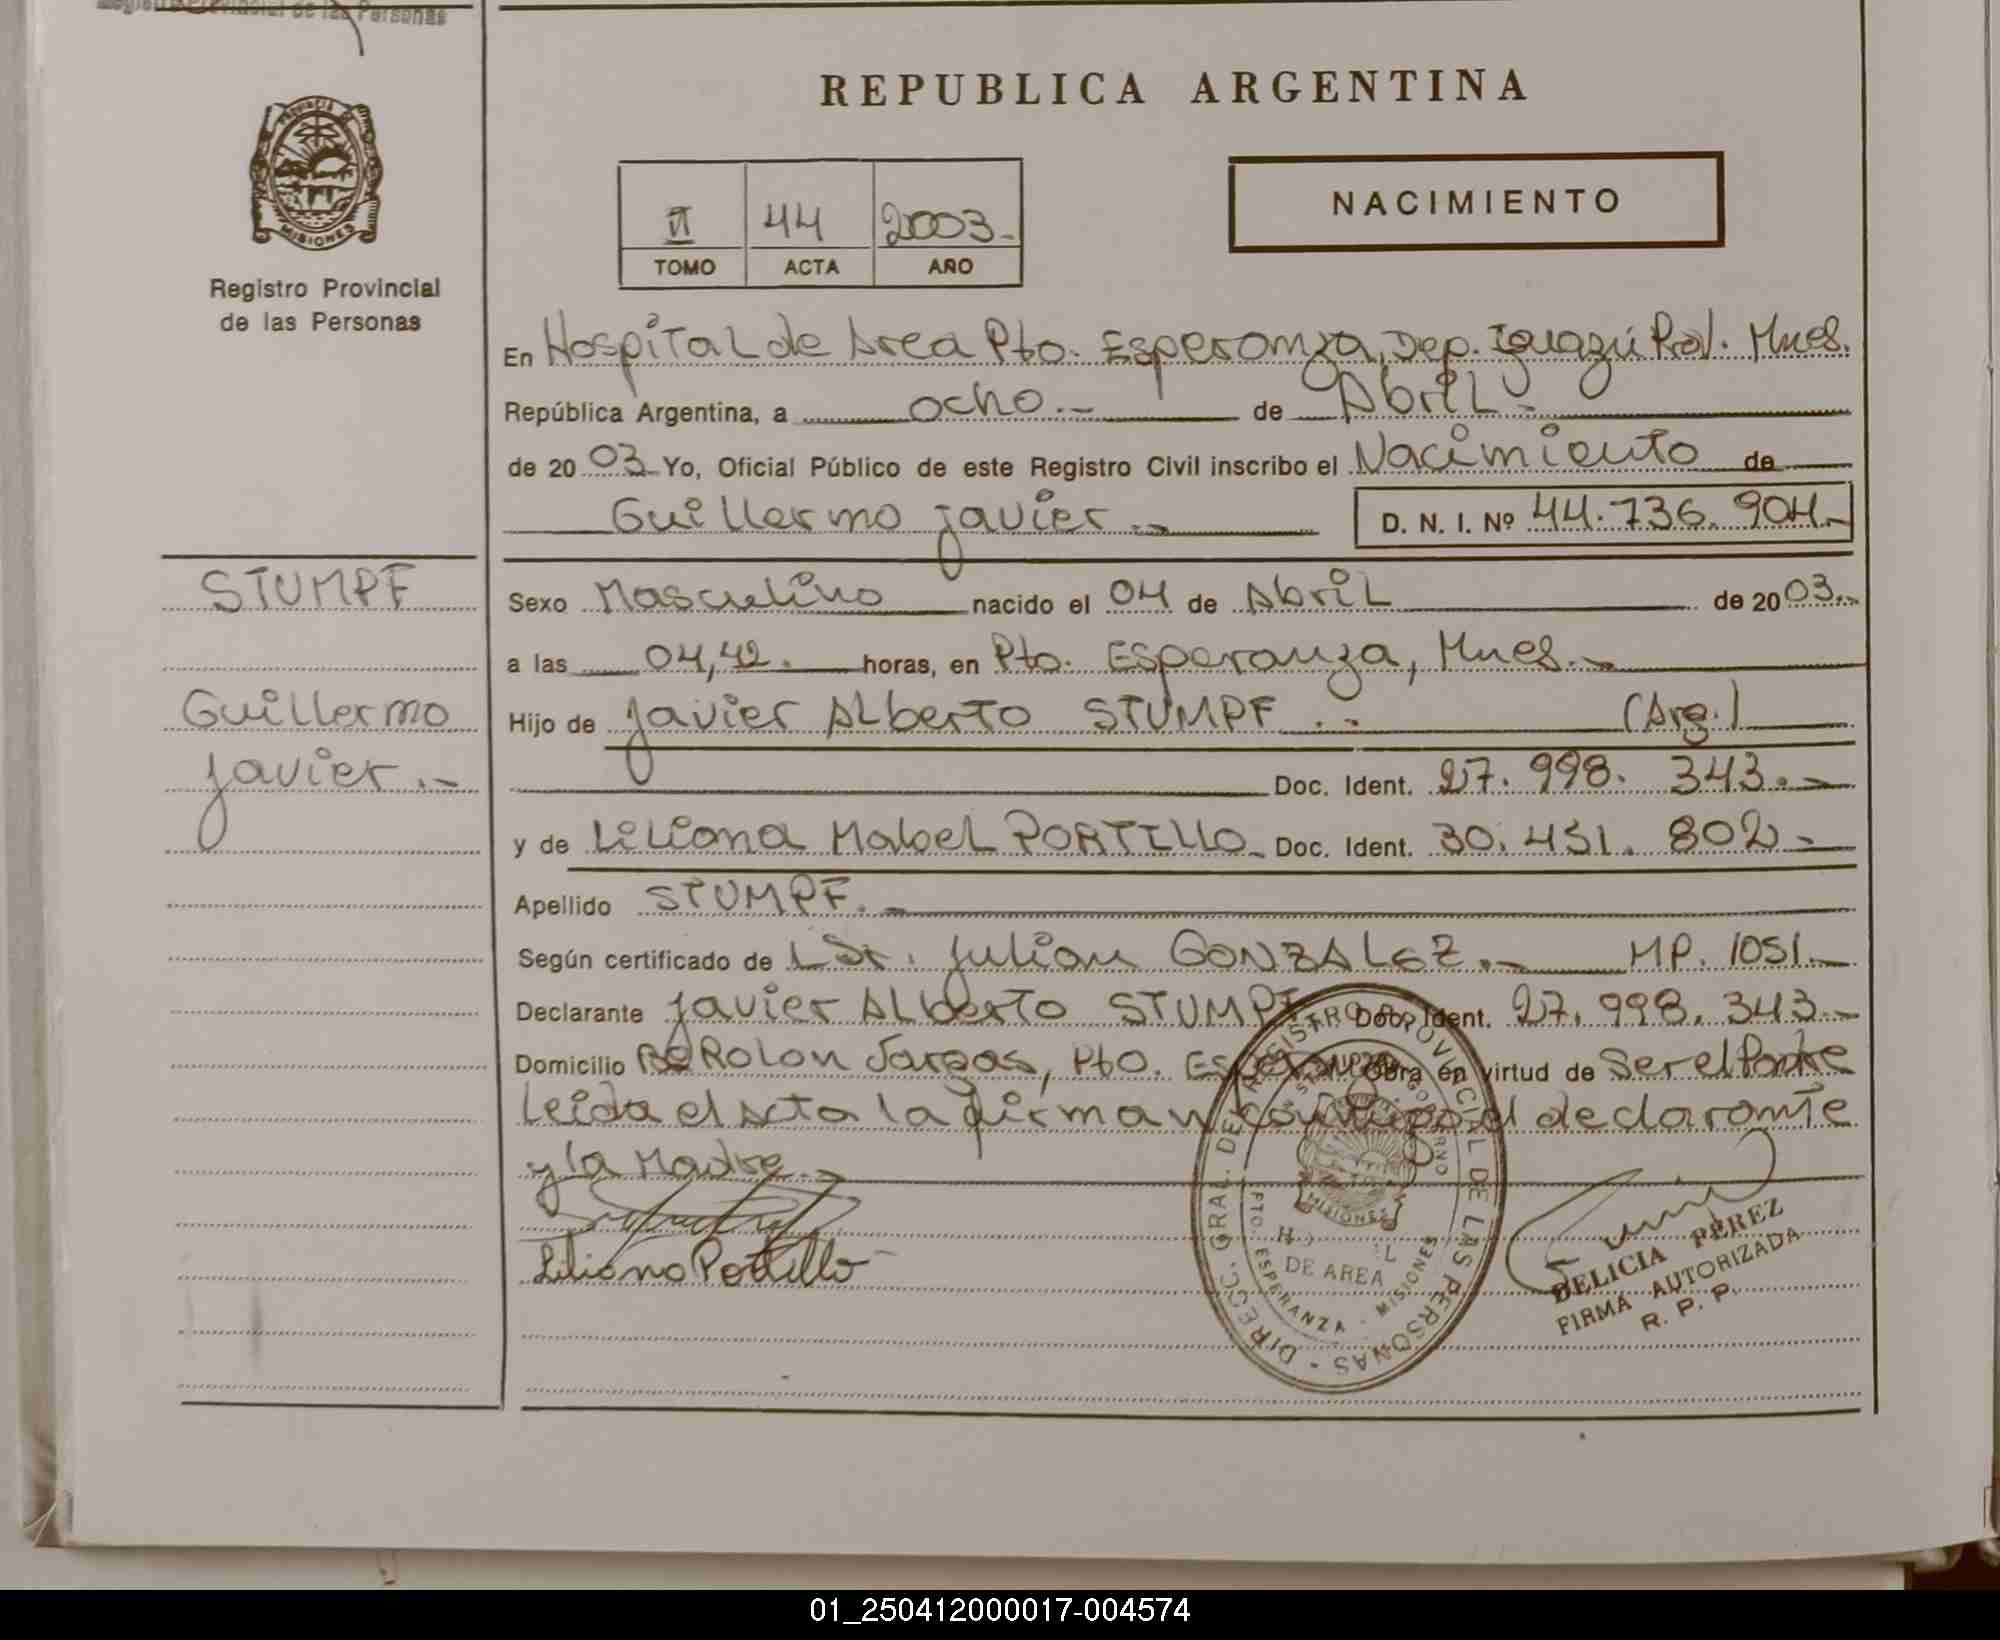 Registro Provincial de las Personas
REPUBLICA ARGENTINA
PROVINCIA DE
MISIONES
Registro Provincial
de las Personas
II 44 2003.-
TOMO ACTA AÑO
NACIMIENTO
En Hospital de Area Pto. Esperanza, Dep. Iguazú Prov. Mnes.
República Argentina, a ocho.- de Abril.-
de 2003 Yo, Oficial Público de este Registro Civil inscribo el Nacimiento de
Guillermo Javier.- D. N. I. Nº 44.736.904.-
STUMPF
Guillermo
Javier.-
Sexo Masculino nacido el 04 de Abril de 2003.-
a las 04,42. horas, en Pto. Esperanza, Mnes.-
Hijo de Javier Alberto STUMPF.- (Arg.)
Doc. Ident. 27.998.343.-
y de Liliana Mabel PORTILLO- Doc. Ident. 30.451.802-
Apellido STUMPF.-
Según certificado de Julian GONZALEZ.- MP. 1051.-
Declarante Javier Alberto STUMPF Doc. Ident. 27.998.343.-
Domicilio Bº Rolon Jargas, Pto. Esperanza Obra en virtud de Ser el Padre
Leida el Acta la firman conmigo el declarante
y la Madre.-
Liliana Portillo-
DIRECC. GRAL. DEL REGISTRO PROVINCIAL DE LAS PERSONAS
MISIONES
DE AREA
PTO. ESPERANZA - MISIONES
DELICIA PEREZ
FIRMA AUTORIZADA
R. P. P.
01_250412000017-004574